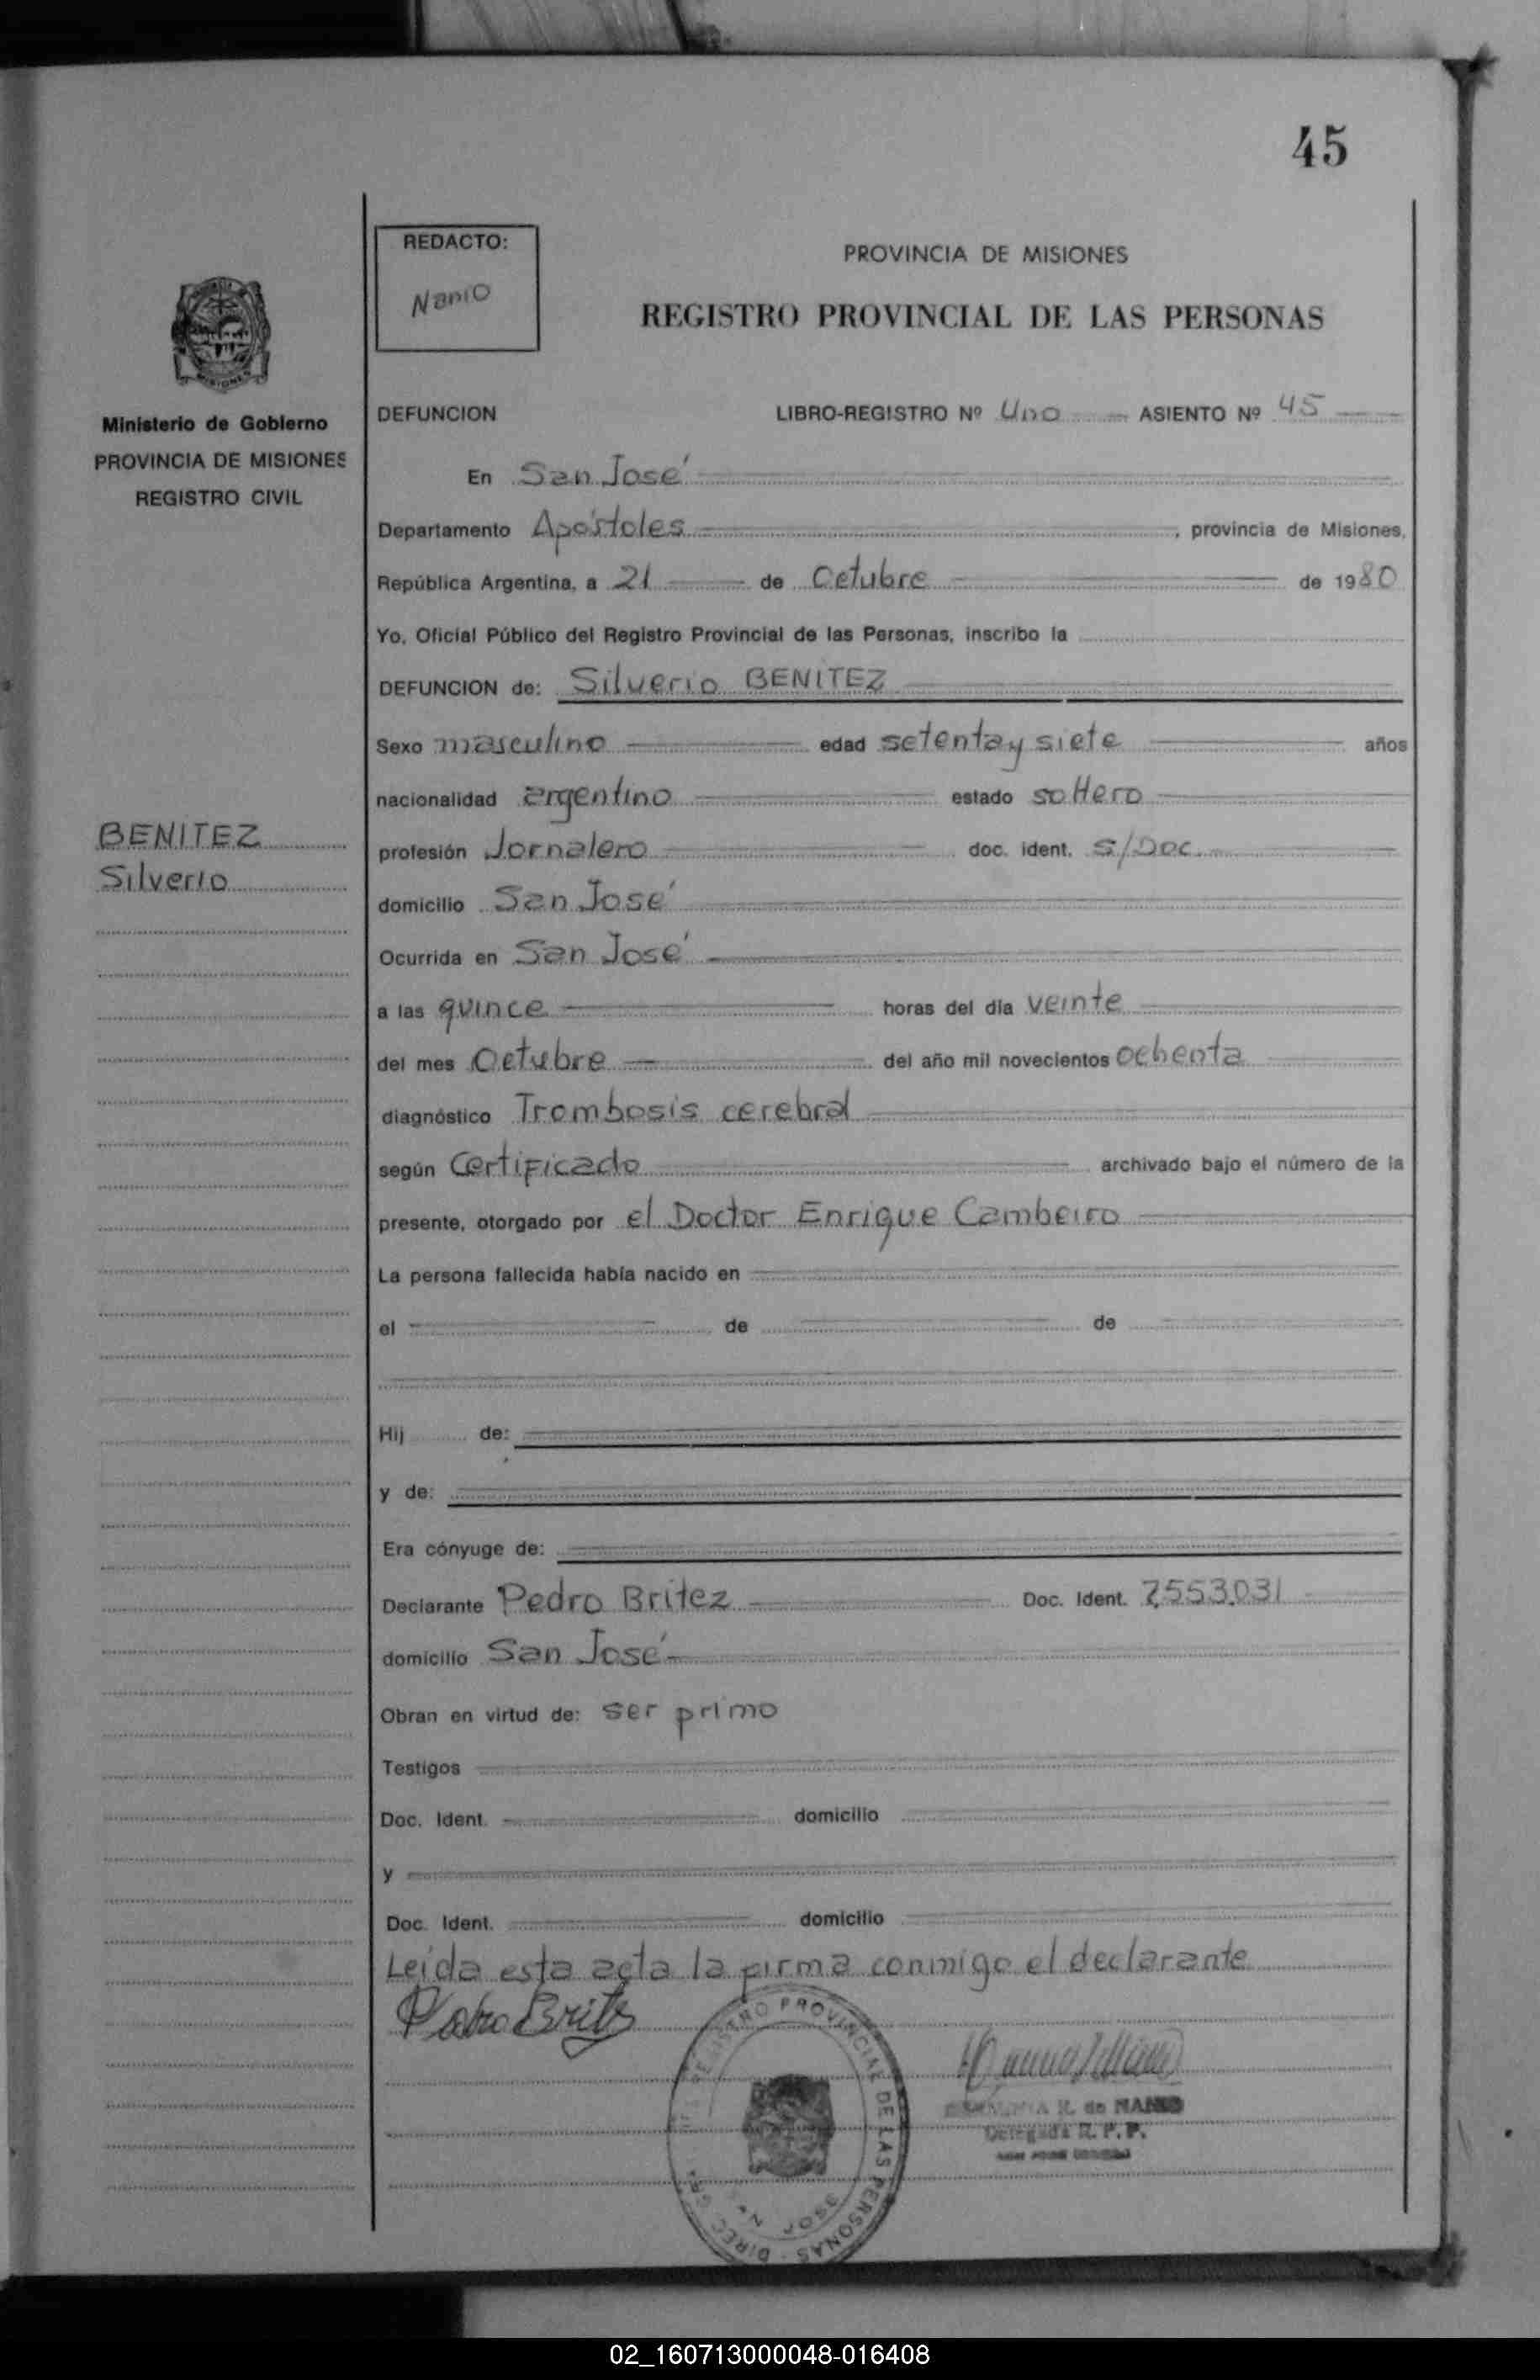 45
REDACTO:
Nanio
PROVINCIA DE MISIONES
REGISTRO PROVINCIAL DE LAS PERSONAS
MISIONES
Ministerio de Gobierno
PROVINCIA DE MISIONES
REGISTRO CIVIL
BENITEZ
Silverio
DEFUNCION LIBRO-REGISTRO Nº Uno ASIENTO Nº 45
En San José
Departamento Apóstoles, provincia de Misiones,
República Argentina, a 21 de Octubre de 1980
Yo, Oficial Público del Registro Provincial de las Personas, inscribo la
DEFUNCION de: Silverio BENITEZ
Sexo masculino edad setenta y siete años
nacionalidad argentino estado soltero
profesión Jornalero doc. ident. S/Doc.
domicilio San José
Ocurrida en San José
a las quince horas del día veinte
del mes Octubre del año mil novecientos ochenta
diagnóstico Trombosis cerebral
según Certificado archivado bajo el número de la
presente, otorgado por el Doctor Enrique Cambeiro
La persona fallecida había nacido en
el de de
Hij de:
y de:
Era cónyuge de:
Declarante Pedro Britez Doc. Ident. 7.553.031
domicilio San José
Obran en virtud de: ser primo
Testigos
Doc. Ident. domicilio
y
Doc. Ident. domicilio
Leída esta acta la firma conmigo el declarante
Pedro Britez
REGISTRO PROVINCIAL DE LAS PERSONAS
R. de NANIO
Delegada R. P. P.
02_160713000048-016408